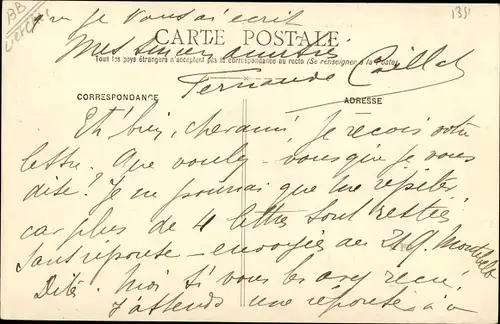 BB
1351
je vous ai écrit
Mes sincères amitiés
CARTE POSTALE
Tous les pays étrangers n'acceptent pas la correspondance au recto (Se renseigner à la Poste)
Fernande Caillet
CORRESPONDANCE
ADRESSE
Eh bien, cher ami, Je reçois votre
lettre. Que voulez-vous que je vous
dise? Je ne pourrai que me répéter
car plus de 4 lettres sont restées
sans réponse - envoyées au 21 9.
Dites moi si vous les avez reçu.
J'attends une réponse à